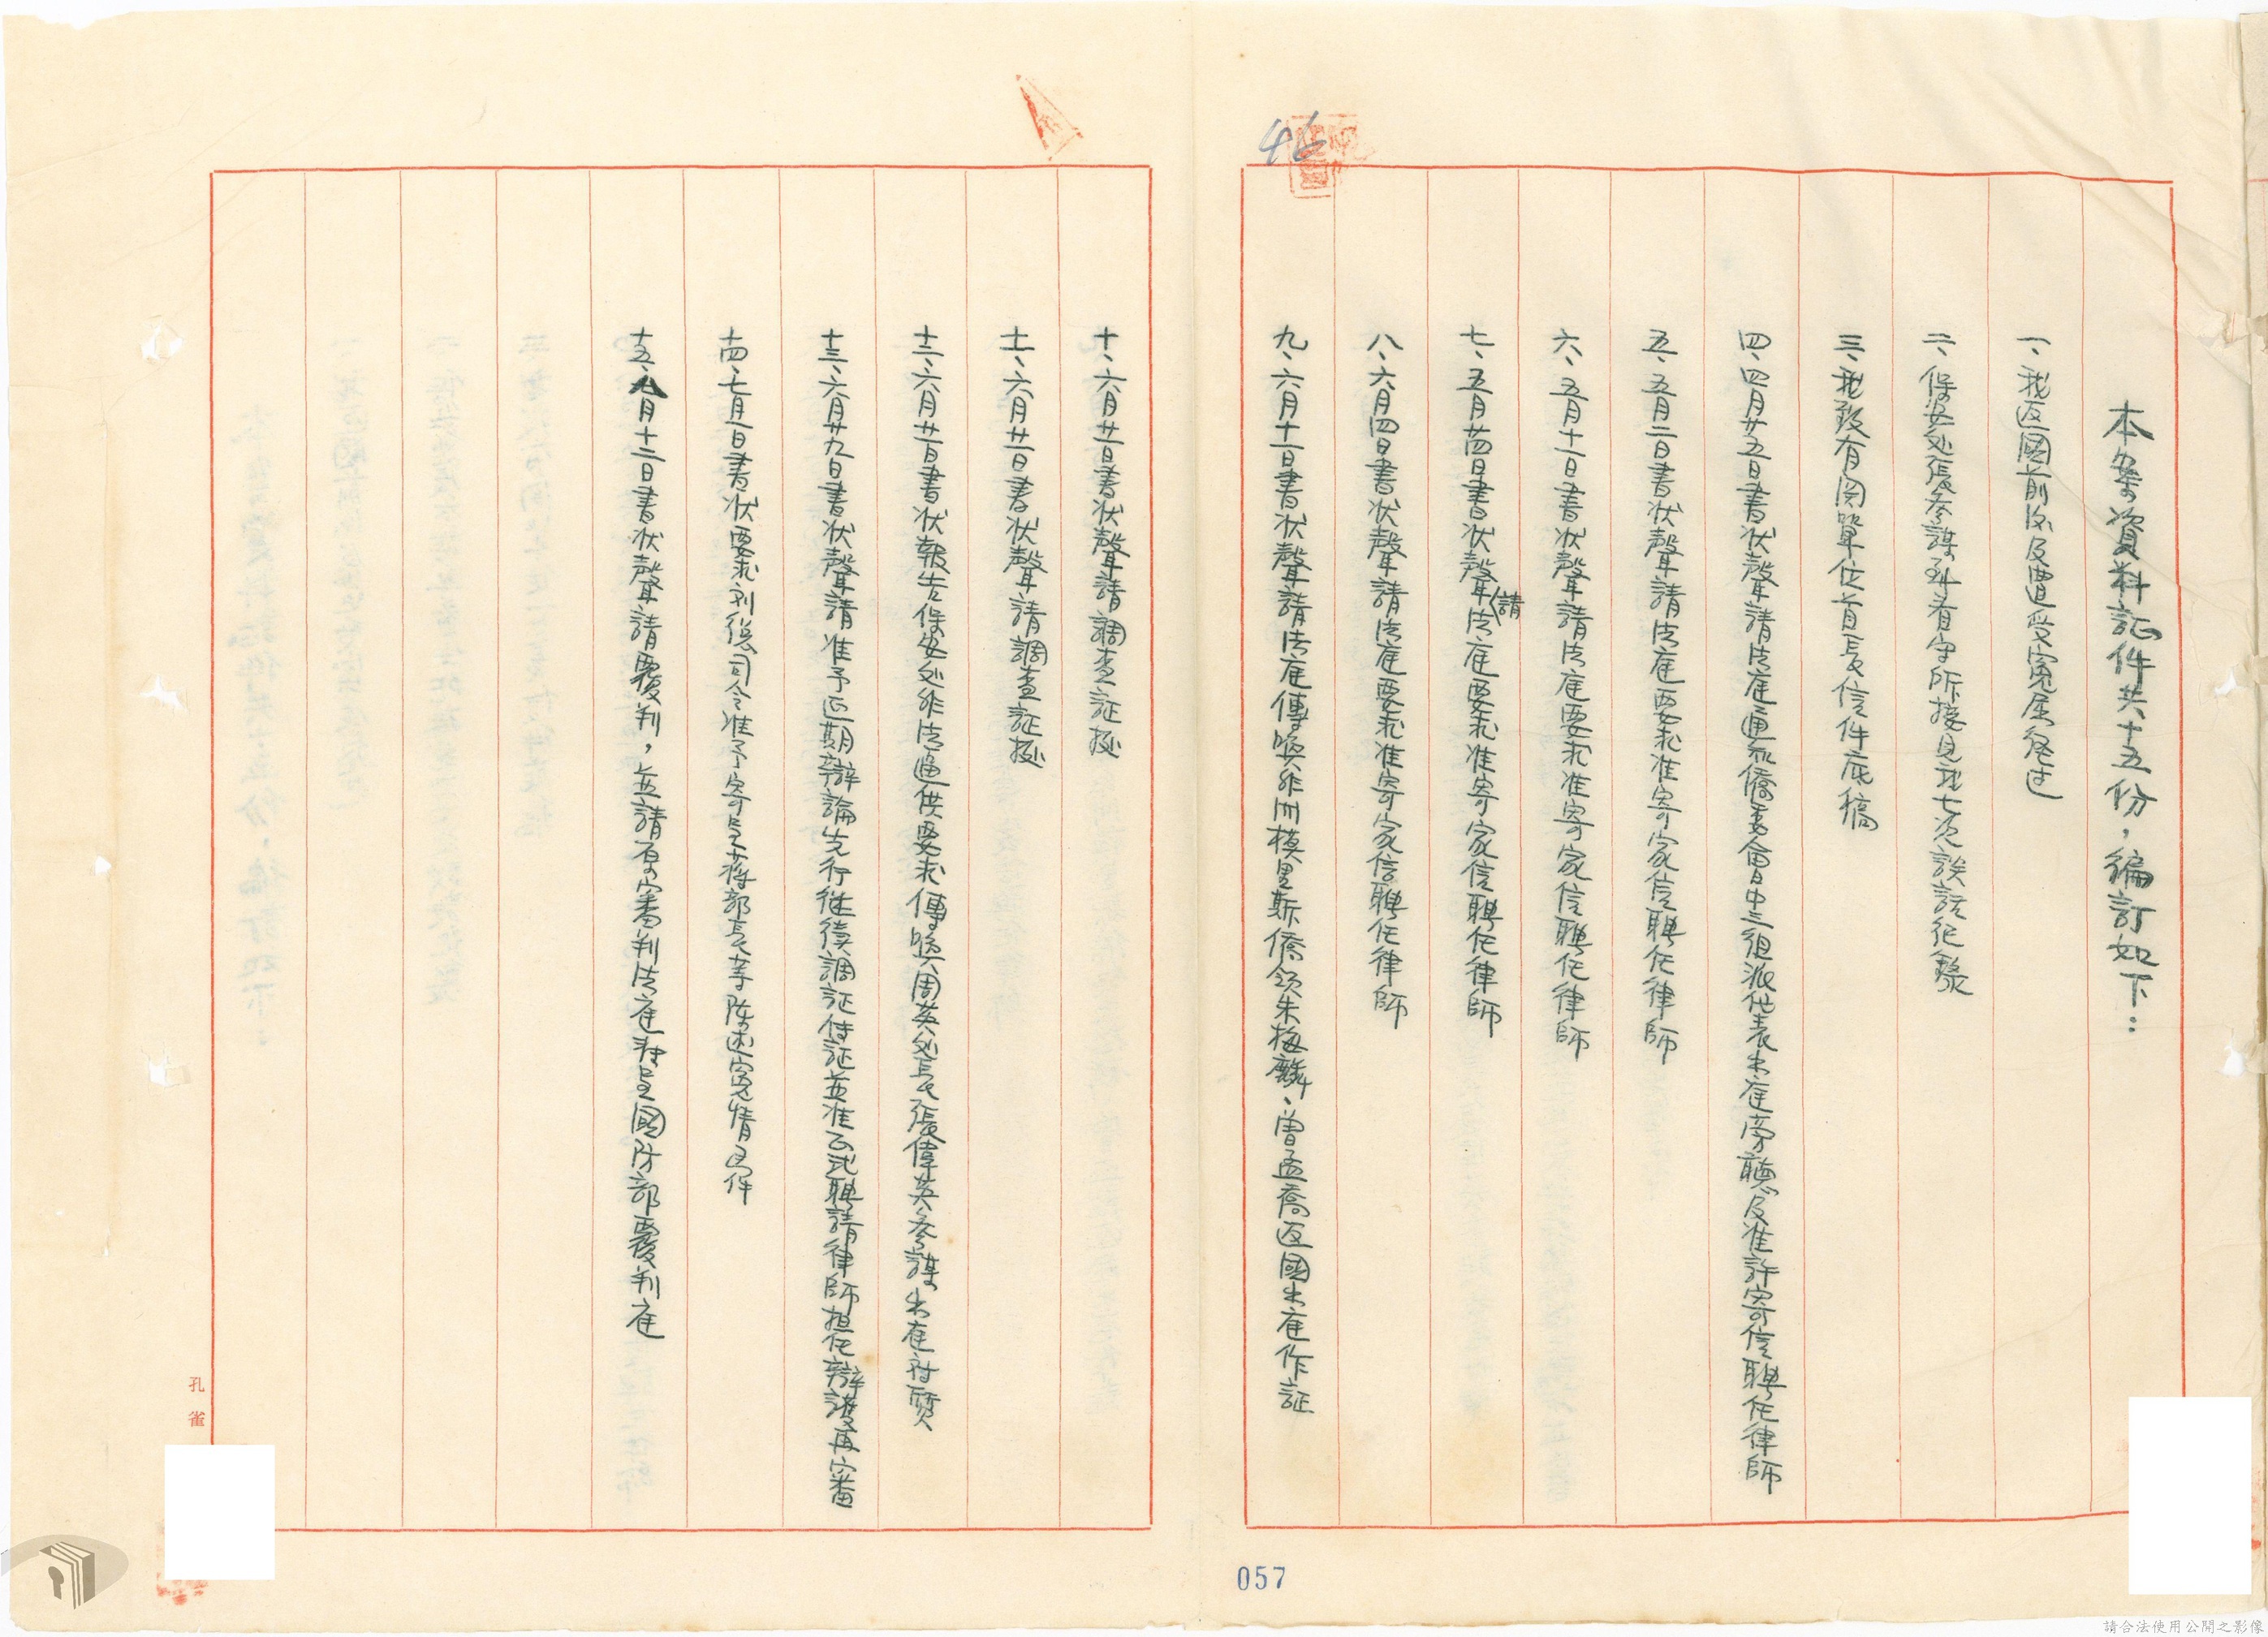 本案資料証件共十五份，編訂如下：
一、我返國前後及遭受寃屈經过
二、保安处張参謀到看守所接見我七次談話纪錄
三、我致有関單位首長信件底稿
四、四月廿五日書状聲請法庭通知僑委會中三组派代表出庭旁聽及准許寄信聘任律師
五、五月二日書状聲請法庭要求准寄家信聘任律師
六、五月十一日書状聲請法庭要求准寄家信聘任律師
七、五月廿四日書状聲請法庭要求准寄家信聘任律師
八、六月四日書状聲請法庭要求准寄家信聘任律師
九、六月十一日書状聲請法庭傳喚非洲模里斯僑领朱梅麟、曾孟喬返國出庭作証
十、六月廿一日書状聲請調查証据
十一、六月廿一日書状聲請調查証据
十二、六月廿二日書状報告保安处非法逼供要求傳喚周英处長張偉英参謀出庭对質
十三、六月廿九日書状聲請准予延期辯論先行继續調証待証並准正式聘請律師担任辯護再審
十四、七月一日書状要求刘総司令准予寄呈蔣部長等陈述寃情函件
十五、八月十二日書状聲請覆判，並請原審判法庭转呈國防部覆判庭
46
057
孔雀
請合法使用公開之影像